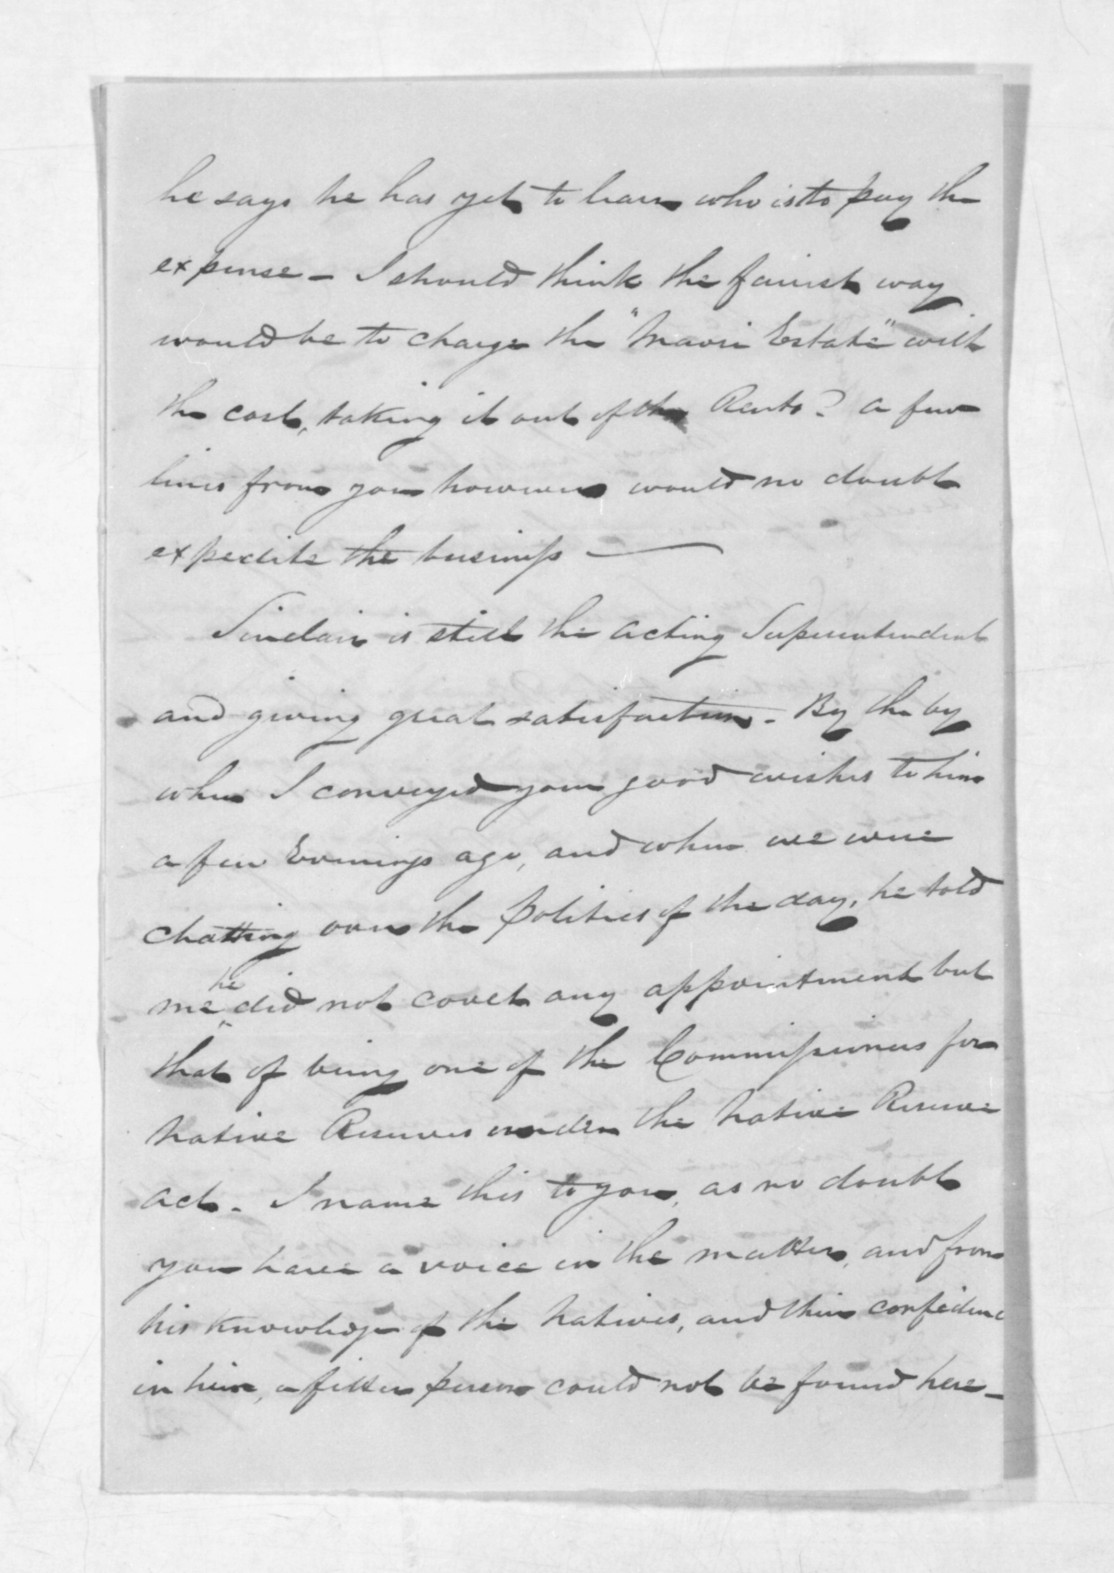 he says he has yet to learn who is to pay the
expense – I should think the fairest way
would be to charge the "Maori Estate" with
the cost, taking it out of the Rents? a few
lines from you however would no doubt
expedite the business —
Sinclair is still the acting Superintendent
and giving great satisfaction – By the by
when I conveyed your good wishes to him
a few Evenings ago, and when we were
chatting over the politics of the day, he told
me he did not covet any appointment but
that of being one of the Commissioners for
Native Reserves under the Native Reserve
Act – I name this to you, as no doubt
you have a voice in the matter, and from
his knowledge of the Natives, and their confidence
in him, a fitter person could not be found here –